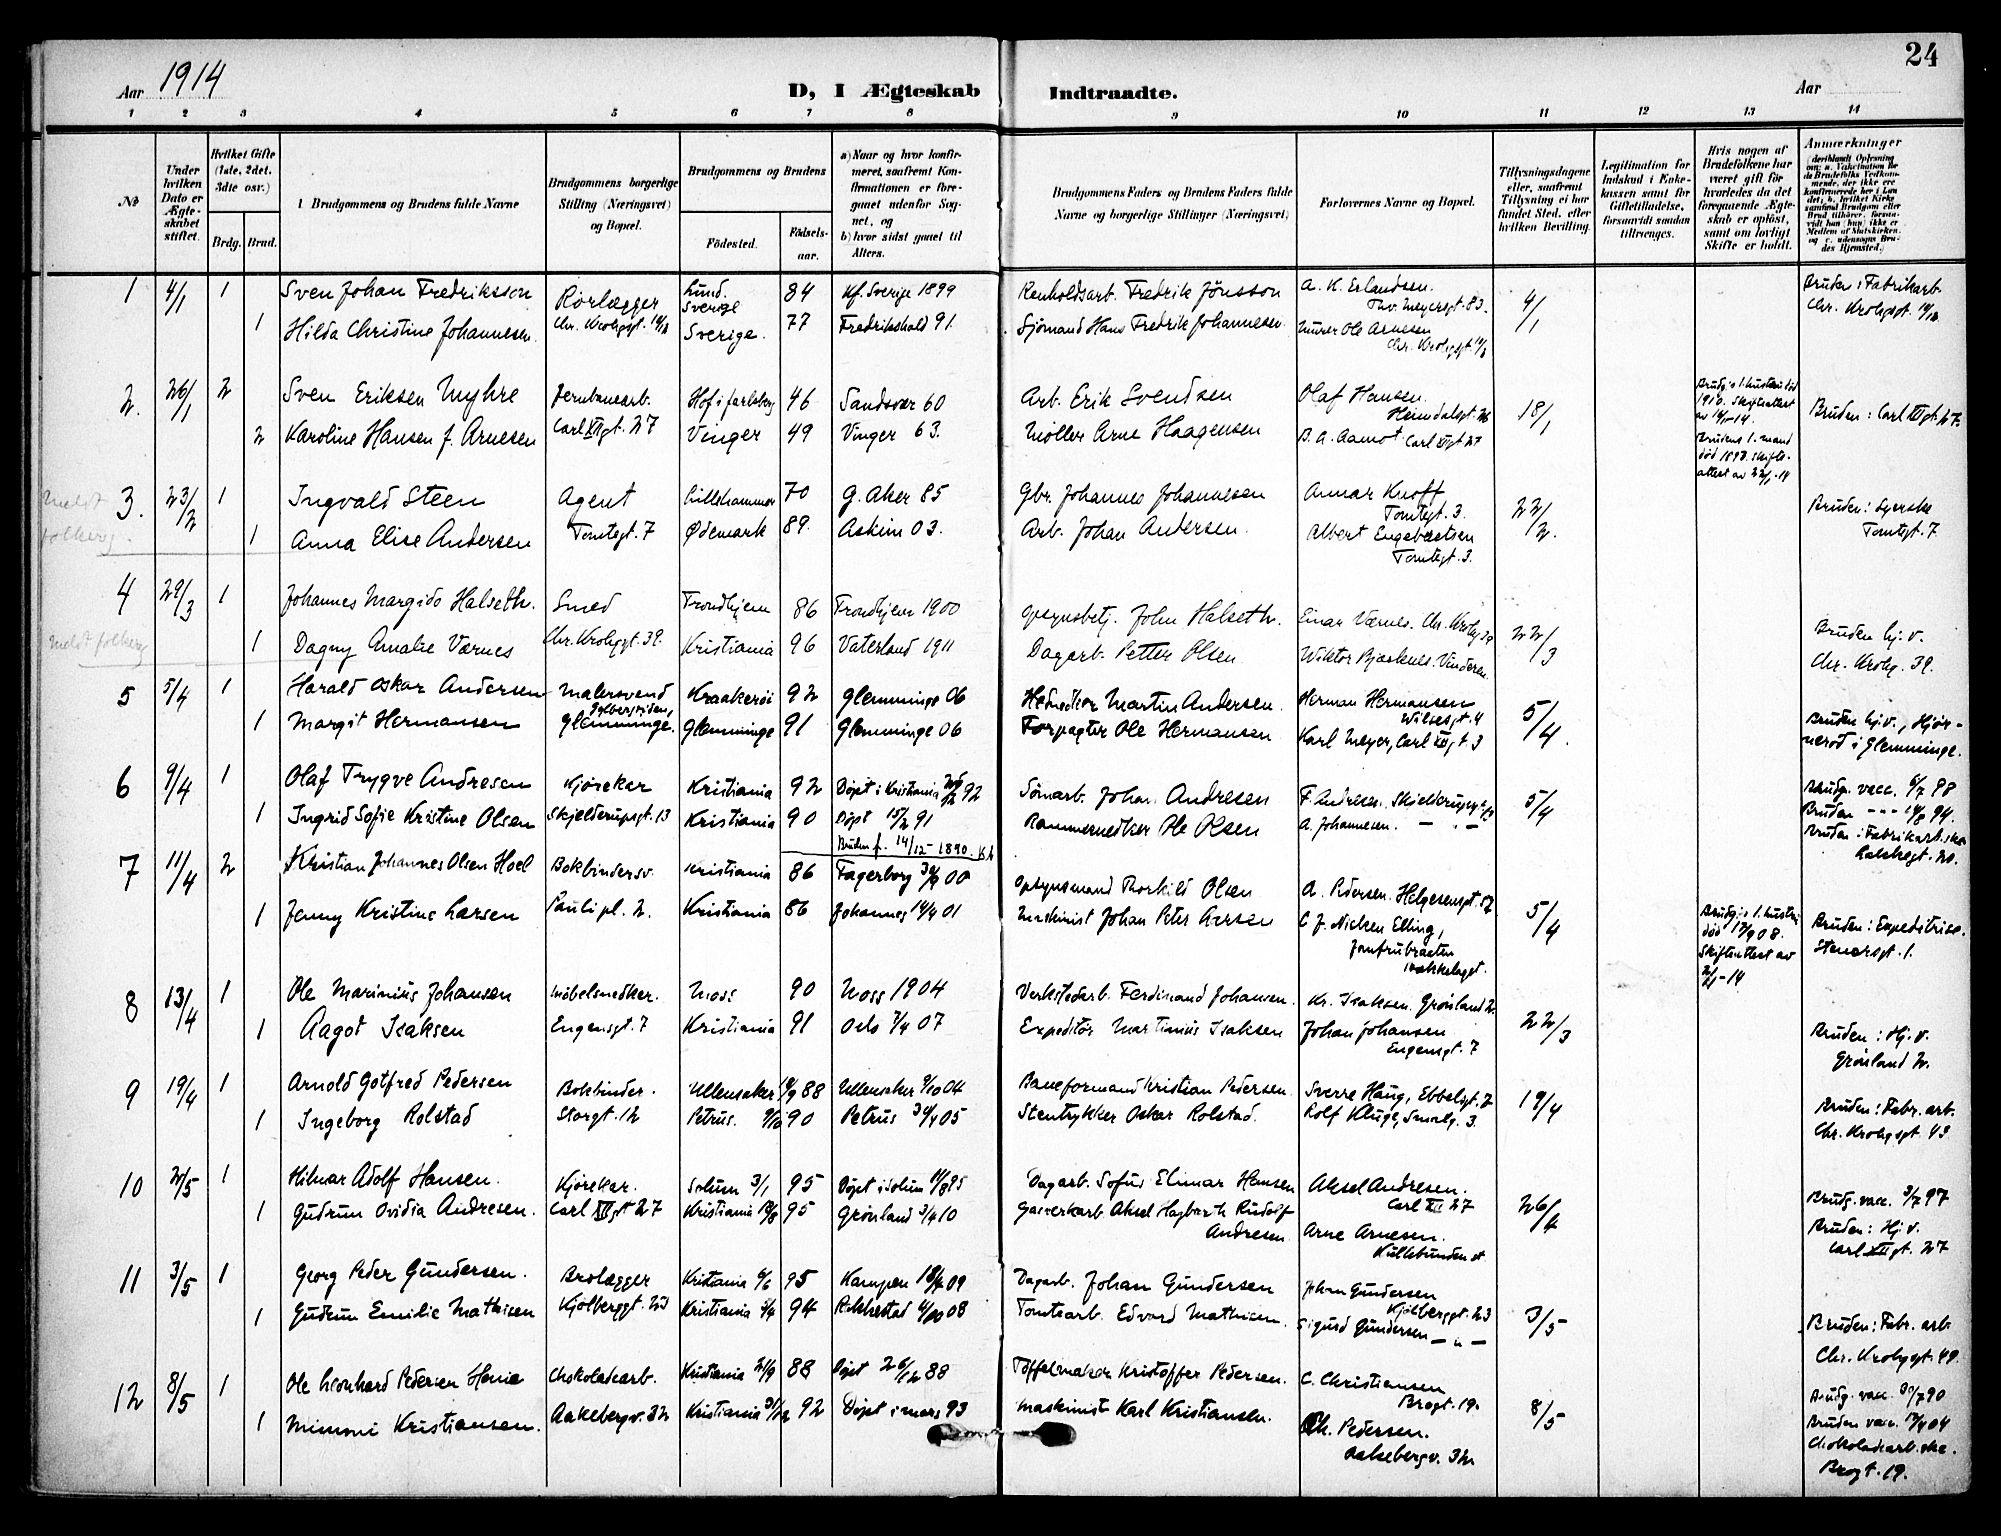 24
Aar 1914
D, I Ægteskab Indtraadte.
Aar
1 2 3 4 5 6 7 8 9 10 11 12 13 14
No
Under hvilken Dato er Ægteskabet stiftet.
Hvilket Gifte (1ste, 2det, 3die osv.)
Brdg. Brud.
Brudgommens og Brudens fulde Navne
Brudgommens borgerlige Stilling (Næringsvei) og Bopæl.
Brudgommens og Brudens
Fødested. Fødselsaar.
a) Naar og hvor konfirmeret, saafremt Konfirmationen er foregaaet udenfor Sognet, og
b) hvor sidst gaaet til Alters.
Brudgommens Faders og Brudens Faders fulde Navne og borgerlige Stillinger (Næringsvei)
Forlovernes Navne og Bopæl.
Tillysningsdagene eller, saafremt Tillysning ei har fundet Sted, efter hvilken Bevilling.
Legitimation for Indskud i Enkekassen samt for Giftetilladelse, forsaavidt saadan tiltrænges.
Hvis nogen af Brudefolkene har været gift før hvorledes da det foregaaende Ægteskab er opløst, samt om lovligt Skifte er holdt.
Anmærkninger
1 4/1 1 Sven Johan Fredriksson Rørlægger Lund. Sverige 84 Kf. Sverige 1899 Renholdsarb. Fredrik Jönsson A. K. Erlandsen. Thv. Meyersgt. 83. 4/1 Bruden: Fabrikarb.
1 Hilda Christine Johannesen. Chr. Krohgsgt. Sverige. 77 Fredrikshald 91. Sjömand Hans Fredrik Johannesen Murer Ole Arnesen Chr. Krohgsgt. Chr. Krohgsgt.
2. 26/1 2 Sven Eriksen Myhre Jernbanearb. Hof i Jarlsberg 46 Sandsvær 60 Arb. Erik Svendsen Olaf Hansen. Heimdalsgt. 26 18/1 Brudg.s 1. hustru død 1910. Skifteattest av 14/1-14. Bruden: Carl XII gt. 27.
2 Karoline Hansen f. Arnesen Carl XII gt. 27 Vinger 49 Vinger 63. Møller Arne Haagensen B. A. Aamot Carl XII gt 27 Brudens 1. mand død 1897. Skifteattest av 22/1-14
Meldt
3. 23/2 1 Ingvald Steen Agent Lillehammer 70 G. Aker 85 Gbr. Johannes Johannesen Annar Knoff Tomtegt. 3. 22/2. Bruden: Syerske
1 Anna Elise Andersen Tomtegt. 7 Ødemark 89. Askim 03. Arb. Johan Andersen. Albert Engebretsen Tomtegt. 3. Tomtegt. 7
4 29/3 1 Johannes Margido Halseth. Smed Trondhjem 86 Trondhjem 1900 Opsynsbetj. John Halseth. Einar Værnes. Chr. Krohg 39 22/3 Bruden hj. v.
Meldt folkereg
1 Dagny Amalie Værnes Chr. Krohgsgt. 39. Kristiania 96 Vaterland 1911 Dagarb. Petter Olsen Wiktor Bjerknes. Vinderen Chr. Krohg. 39.
5 5/4 1 Harald Oskar Andersen Malersvend Kraakerøi 92 Glemminge 06 Martin Andersen. Herman Hermansen Wilsesgt. 4 5/4.
1 Margit Hermansen Glemminge. Glemminge 91 Glemminge 06 Forpagter Ole Hermansen Karl Meyer, Carl XII gt. 3 Bruden hj. v., Hjørnerød i Glemminge.
6 9/4 1 Olaf Trygve Andresen Kjørekar Kristiania 92 Døpt i Kristiania 92 Sömarb. Johan Andresen F. Andresen. 5/4 Brudg. vacc. 6/7 98
1 Ingrid Sofie Kristine Olsen Skjelderupsgt. 13 Kristiania 90 Døpt 15/2 91 Ole Olsen A. Johannesen. Bruden
Bruden f. 14/12 - 1890. Bruden: Fabrikarb.ske
7 11/4 2 Kristian Johannes Olsen Hoel Bokbindersv. Kristiania 86 Fagerborg 00 Opsynsmand Thorkild Olsen A. Pedersen. Helgesensgt. 5/4
1 Jenny Kristine Larsen Pauli pl. 2. Kristiania 86 Johannes 14/4 01 Maskinist Johan Peter Larsen C. J. Nielsen Elling, Jomfrubraaten Brudg.s 1. hustru død 08. Skifteattest av 2/1-14 Bruden: Expeditrise. Stenersgt. 1.
8 13/4 1 Ole Marinius Johansen Møbelsnedker. Moss 90 Moss 1904 Verkstedarb. Ferdinand Johansen. Kr. Isaksen. Grønland 2.
1 Aagot Isaksen Engensgt. 7 Kristiania 91 Oslo 7/4 07 Expeditør Martinius Isaksen Johan Johansen Engensgt. 7 22/3 Bruden: Hj. v. Grønland 2.
9 19/4 1 Arnold Gotfred Pedersen Bokbinder. Ullensaker 88 Ullensaker 9/10 04 Baneformand Kristian Pedersen. Sverre Haug, Ebbelsgt. 7 19/4
1 Ingeborg Rolstad Storgt. 12 Petrus. 9/10 90 Petrus 30/4 05 Stentrykker Oskar Rolstad. Rolf Kluge, Smalg. 3. Bruden: Fabr. arb. Chr. Krohgsgt. 43
10 2/5 1 Hilmar Adolf Hansen. Kjørekar. Solum 3/1 95 Døpt i Solum 95 Dagarb. Sofus Elimar Hansen Aksel Andresen. Carl XII 27 26/4 Brudg. vacc. 3/7 97
1 Gudrun Ovidia Andresen. Carl XII gt 27 Kristiania 95 Grønland 3/4 10 Gasverkarb. Aksel Hagbarth Rudolf Andresen Arne Arnesen. Bruden: Hj. v. Carl XII gt. 27
11 3/5 1 Georg Peder Gundersen. Brolægger Kristiania 6/6 95 Kampen 09 Dagarb. Johan Gundersen Johan Gundersen Kjölberggt. 23 3/5
1 Gudrun Emilie Mathisen Kjölberggt. 23 Kristiania 94 Rakkestad 08 Tomtearb. Edvard Mathisen. Sigurd Gundersen — „ — Bruden: Fabr. arb Chr. Krohgsgt. 49
12 8/5 1 Ole Leonhard Pedersen Chokoladearb. Kristiania 21/9 88 Døpt 26/12 88 Töffelmaker Kristoffer Pedersen. C. Christiansen Brogt. 19. 8/5 Brudg. vacc. 90
1 Mimmi Kristiansen. Aakebergv. 32 Kristiania 92 Døpt i mars 93 Maskinist Karl Kristiansen. Ch. Pedersen. Aakebergv. 32 Bruden vacc. 04 Chokoladearb.ske. Brogt. 19.